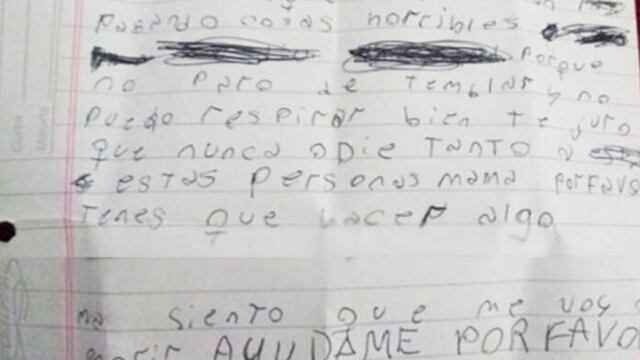 pasando cosas horribles
porque
no paro de temblar y no
puedo respirar bien te juro
que nunca odie TanTo a
estas personas mama porfavo
Tenes que hacer algo
me siento que me voy
morir AYUDAME POR FAVO